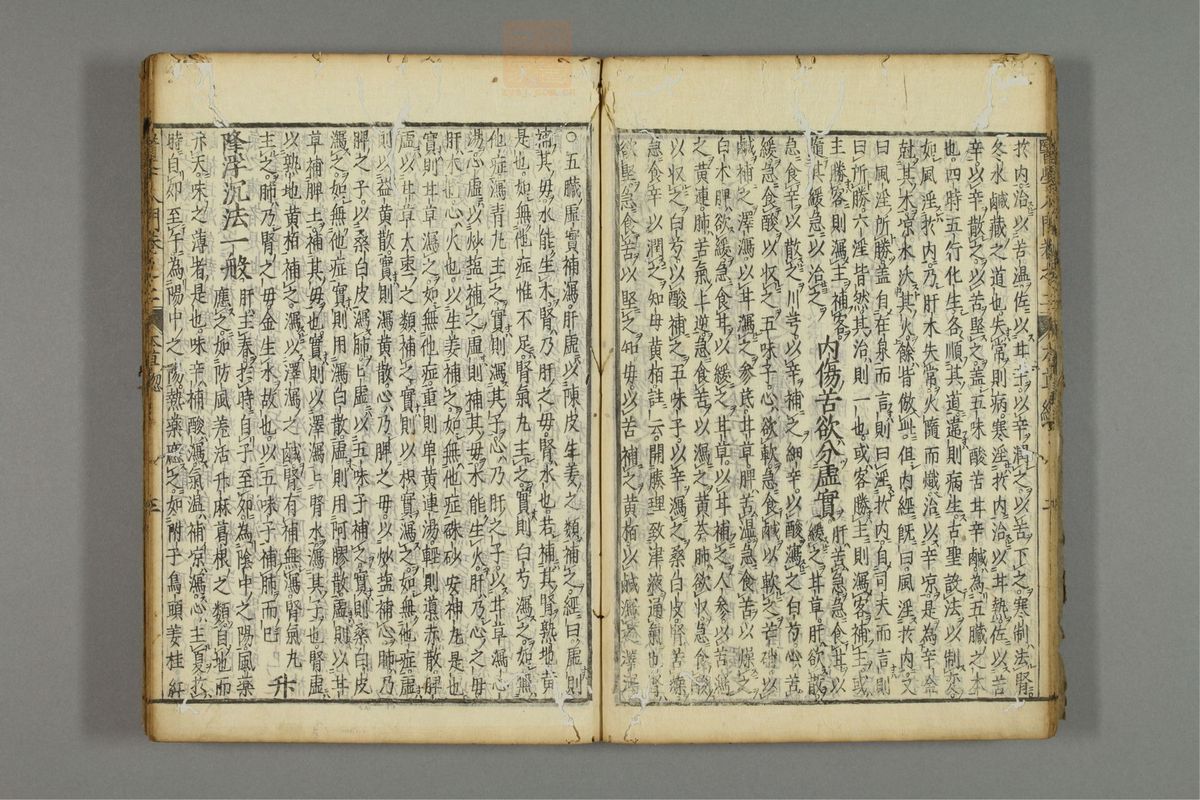 於內治以苦温佐以甘辛以辛潤之以苦下之寒制法腎
冬水鹹藏之道也失常則病寒淫於內治以甘熱佐以苦
辛以辛散之以苦堅之盖五味酸苦甘辛鹹為五臟之本
也四時五行化生各順其道違則病生古聖設法以制變
如風淫於內乃肝木失常火隨而熾治以辛凉是為辛金
尅其木凉水沃其火餘皆倣此但內經既曰風淫於內又
曰風淫所勝盖自在泉而言則曰淫於內自司天而言則
曰所勝六淫皆然其治則一也或客勝主則瀉客補主或
主勝客則瀉主補客
隨其緩急以治之 內傷苦欲分虛實 肝苦急急食甘以
緩之甘草肝欲散
急食辛以散之川芎以辛補之細辛以酸瀉之白芍心苦
緩急食酸以収之五味子心欲軟急食鹹以軟之芒硝以
鹹補之澤瀉以甘瀉之參芪甘草脾苦濕急食苦以燥之
白术脾欲緩急食甘以緩之甘草以甘補之人參以苦瀉
之黃連肺苦氣上逆急食苦以瀉之黃芩肺欲収急食酸
以収之白芍以酸補之五味子以辛瀉之桑白皮腎苦燥
急食辛以潤之知母黃栢註云開腠理致津液通氣也腎
欲堅急食苦以堅之知母以苦補之黃栢以鹹瀉之澤瀉
○五臟虛實補瀉肝虛以陳皮生姜之類補之經曰虛則
補其毋水能生木腎乃肝之毋腎水也若補其腎熟地黃
是也如無他症惟不足腎氣丸主之實則白芍瀉之如無
他症瀉青丸主之實則瀉其子心乃肝之子以甘草瀉心
湯心虛以炒塩補之虛則補其毋木能生火肝乃心之毋
肝木也心火也以生姜補之如無他症硃砂安神丸是也
實則甘草瀉之如無他症重則单黃連湯輕則導赤散脾
虛以甘草大棗之類補之實則以枳實瀉之如無他症虛
則以益黃散實則瀉黃散心乃脾之毋以炒塩補心肺乃
脾之子以桑白皮瀉肺肺虛以五味子補之實則桑白皮
瀉之如無他症實則用瀉白散虛則用阿膠散虛則以甘
草補脾土補其毋也實則以澤瀉瀉腎水瀉其子也腎虛
以熟地黃黃栢補之瀉以澤瀉之鹹腎有補無瀉腎氣丸
主之肺乃腎之毋金生水故也以五味子補肺而已 升
降浮沉法一般 肝主春於時自子至卯為陰中之陽風藥
應之如防風羗活升麻葛根之類自地而
升天味之薄者是也味辛補酸瀉氣温補凉瀉心主夏於
時自卯至午為陽中之陽熱藥應之如附子烏頭姜桂紅